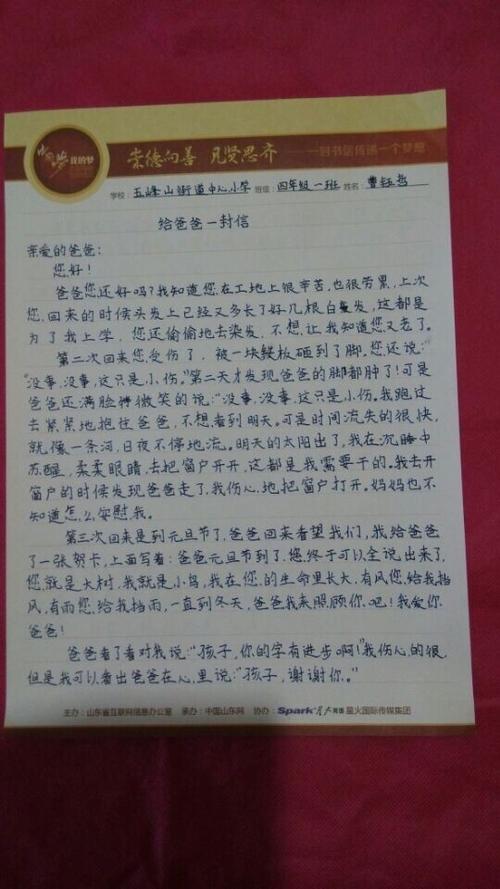 中国梦 我的梦
崇德向善 见贤思齐 ——一封书信传递一个梦想
学校: 五峰山街道中心小学 班级: 四年级一班 姓名: 曹钰哲
给爸爸一封信
亲爱的爸爸:
您好!
爸爸您还好吗?我知道您在工地上很辛苦,也很劳累,上次
您回来的时候头发上已经又多长了好几根白曼发,这都是
为了我上学,您还偷偷地去染发,不想让我知道您又老了。
第二次回来您受伤了,被一块鞕板砸到了脚,您还说:
“没事,没事,这只是小伤。”第二天才发现爸爸的脚都肿了!可是
爸爸还满脸微笑的说:“没事,没事,这只是小伤。我跑过
去紧紧地抱住爸爸,不想看到明天。可是时间流失的很快,
就像一条河,日夜不停地流。明天的太阳出了,我在沉睡中
苏醒,柔柔眼睛,去把窗户开开,这都是我需要干的。我去开
窗户的时候发现爸爸走了,我伤心地把窗户打开。妈妈也不
知道怎么安慰我。
第三次回来是到元旦节了,爸爸回来看望我们,我给爸爸
了一张贺卡,上面写着:爸爸元旦节到了.您终于可以全说出来了,
您就是大树,我就是小鸟,我在您的生命里长大,有风您给我挡
风,有雨您给我挡雨,一直到冬天,爸爸我来照顾你吧!我爱你
爸爸!
爸爸看了看对我说:“孩子,你的字有进步啊!”我伤心的很,
但是我可以看出爸爸在心里说:“孩子,谢谢你。”
主办:山东省互联网信息办公室 承办:中国山东网 协办:Spark 星火英语 星火国际传媒集团